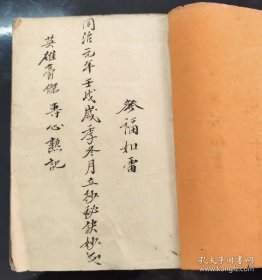 彌如雷
同治元年壬戌歲季冬月立抄秘訣抄
英雄豪傑 專心熟記
孔夫子旧书网